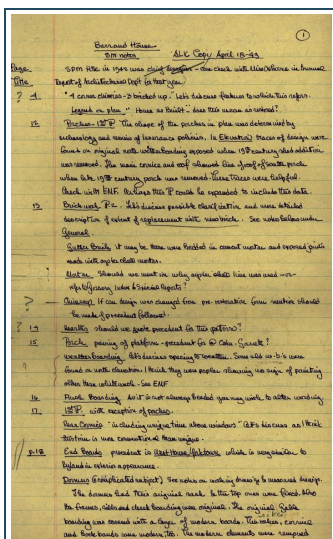 ①
Barraud House
SM notes ALK Copy April 18-49
Page SPM Rtc in 1942 was chief designer - one check with Miss Osborne in Annual
Title Report of Architectural Dept for that year
? 4 "4 corner chimneys - 3 bricked up." Let's discuss features to which this refers.
Legend on plan "House as Built" - does this mean as restored?
12. Porches - 1st P The shape of the porches in plan was determined by
archaeology and review of insurance policies. In Elevation traces of design were
found on original north weatherboarding exposed when 19th century shed addition
was removed. The main cornice and roof showed line of roof of south porch
when late 19th century porch was removed. These traces were helpful.
Check with ENF. Perhaps this P could be expanded to include this data.
13 Brickwork P2. Let's discuss possible clarification and more detailed
description of extent of replacement with new brick. See notes below under
General.
Gutter Bricks It may be these were bedded in cement mortar and exposed joints
made with oyster shell mortar.
Mortar Should we mention why oyster shell lime was used - or
refer to Glossary, Index & Special Reports?
? Chimneys If cap design was changed from pre-restoration form mention should
be made of precedent followed.
? 14 Hearths should we quote precedent for this pattern?
15 Porch paving of platform - precedent for
Weatherboarding let's discuss opening to
found in north elevation I think they were poplar showing no sign of painting
other than whitewash - See ENF
16 Flush Boarding As it is not always beaded you may wish to alter wording
17. 1st P. with exception of porches.
"including unique trim above windows" Let's discuss as I think
this trim is more conventional than unique.
p.18 End Boards precedent is which is very similar to
in exterior appearance.
Dormers (complicated subject) See notes on working drawings & measured drawings.
The dormers had their original sash & the top ones were fixed. Also
the frames, sides and cheek boarding was original. The original gable
boarding was covered with a layer of modern boards. The rakes, cornice
and barge boards were modern, too. The modern elements were removed